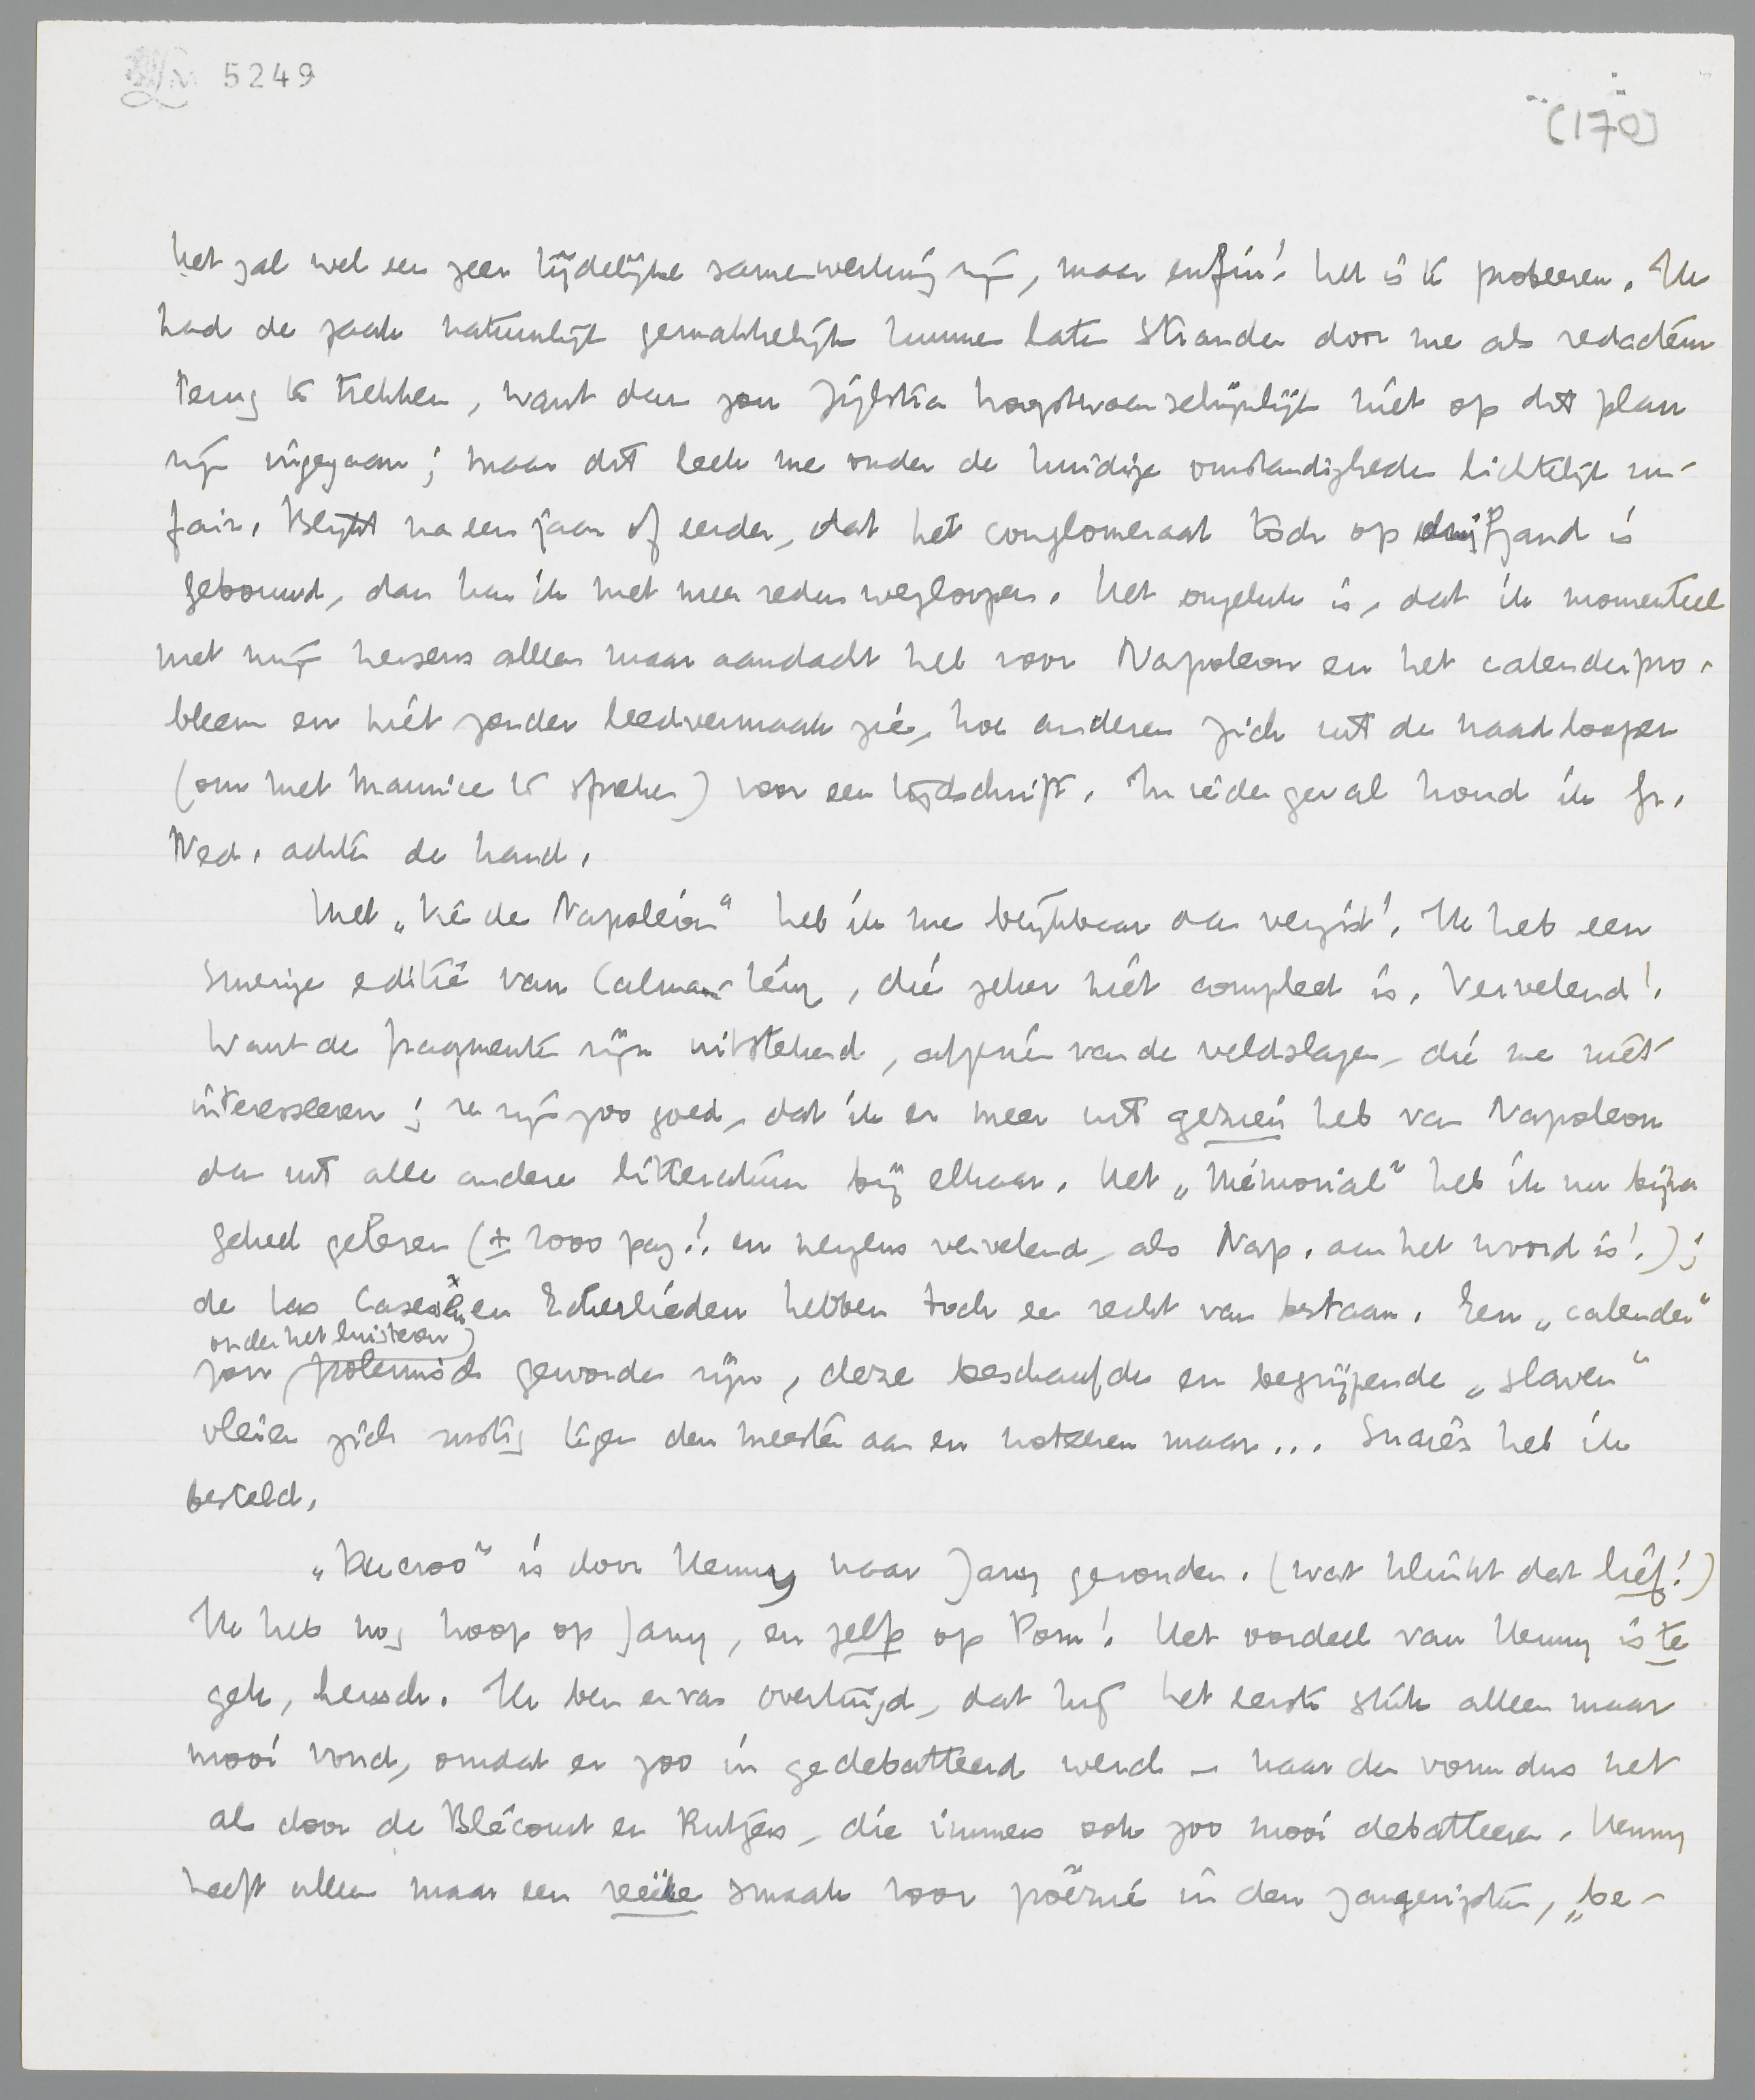 LM 5249
(170)
het zal wel een zeer tijdelijke samenwerking zijn, maar enfin! het is te probeeren. Ik
had de zaak natuurlijk gemakkelijk kunnen laten stranden door me als redacteur
terug te trekken, want dan zou Zijlstra hoogstwaarschijnlijk niet op dit plan
zijn ingegaan; maar dit leek me onder de huidige omstandigheden lichtelijk un-
fair. Blijkt na een jaar of eerder, dat het conglomeraat toch op drijfzand is
gebouwd, dan kan ik met meer reden wegloopen. Het ongeluk is, dat ik momenteel
met mijn hersens alleen maar aandacht heb voor Napoleon en het calenderpro-
bleem en niet zonder leedvermaak zie, hoe anderen zich uit de naad loopen
(om met Maurice te spreken) voor een tijdschrift. In ieder geval houd ik Gr.
Ned. achter de hand.
Met „Vie de Napoléon" heb ik me blijkbaar dan vergist! Ik heb een
smerige editie van Calman-Lévy, die zeker niet compleet is. Vervelend!
Want de fragmenten zijn uitstekend, afgezien van de veldslagen, die me niet
interesseeren; ze zijn zoo goed, dat ik er meer uit gezien heb van Napoleon
dan uit alle andere litteratuur bij elkaar. Het „Mémorial" heb ik nu bijna
geheel gelezen (± 2000 pag.! en nergens vervelend, als Nap. aan het woord is!);
de Las Casessen en Eckerlieden hebben toch een recht van bestaan. Een „calender"
onder het luisteren
zou polemisch geworden zijn, deze beschaafde en begrijpende „slaven"
vleien zich rustig tegen den meester aan en noteeren maar... Suarès heb ik
besteld.
„Ducroo" is door Henny naar Jany gezonden. (wat klinkt dat lief!)
Ik heb nog hoop op Jany, en zelfs op Pom! Het oordeel van Henny is te
gek, heusch. Ik ben ervan overtuigd, dat hij het eerste stuk alleen maar
mooi vond, omdat er zoo in gedebatteerd werd – naar den vorm dus net
als door de Blécourt en Rutgers, die immers ook zoo mooi debatteeren. Henny
heeft alleen maar een reëele smaak voor poëzie in den zangerigsten, „be-